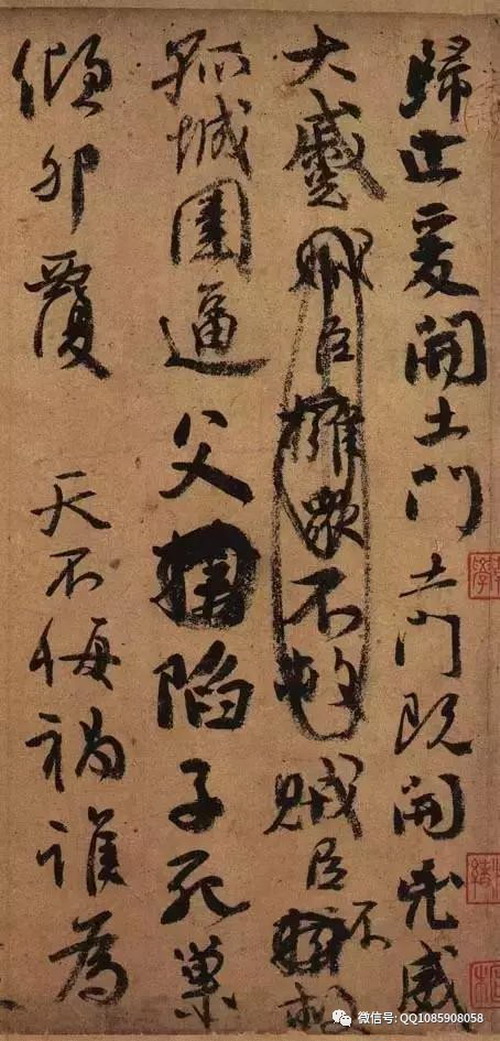 歸止爰開土門土門既開兇威
大蹙賊臣擁衆不救賊臣不救
孤城圍逼父陷子死巢
傾卵覆 天不悔禍誰為
微信号: QQ1085908058